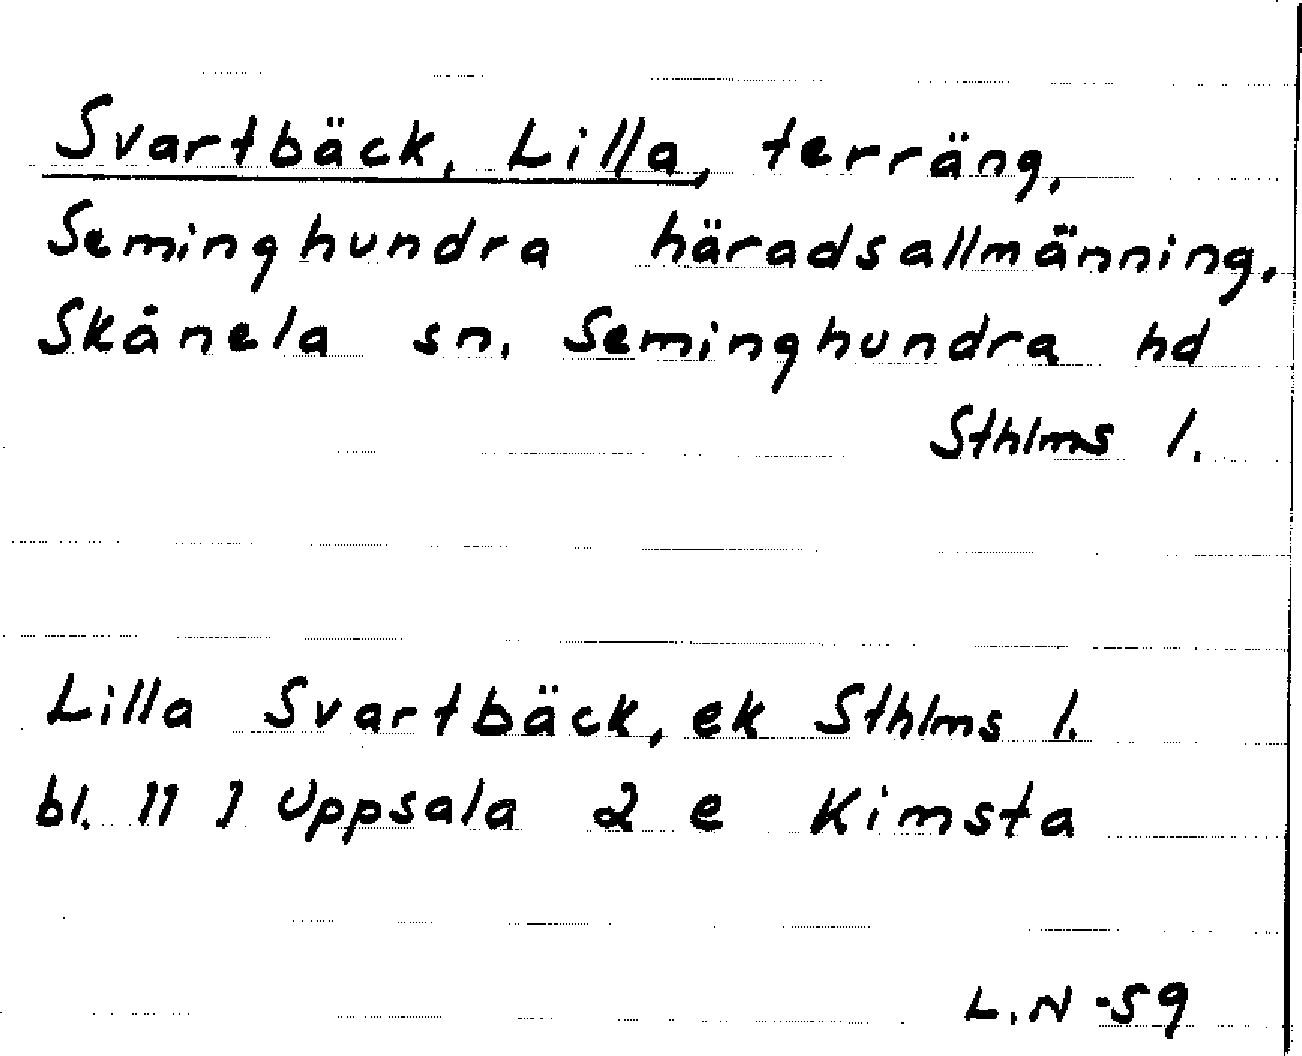 Svartbäck, Lilla, terräng,
Seminghundra häradsallmänning,
Skånela sn, Seminghundra hd
Sthlms l.
Lilla Svartbäck, ek Sthlms l.
bl. 11 I Uppsala 2 e Kimsta
L.N -59